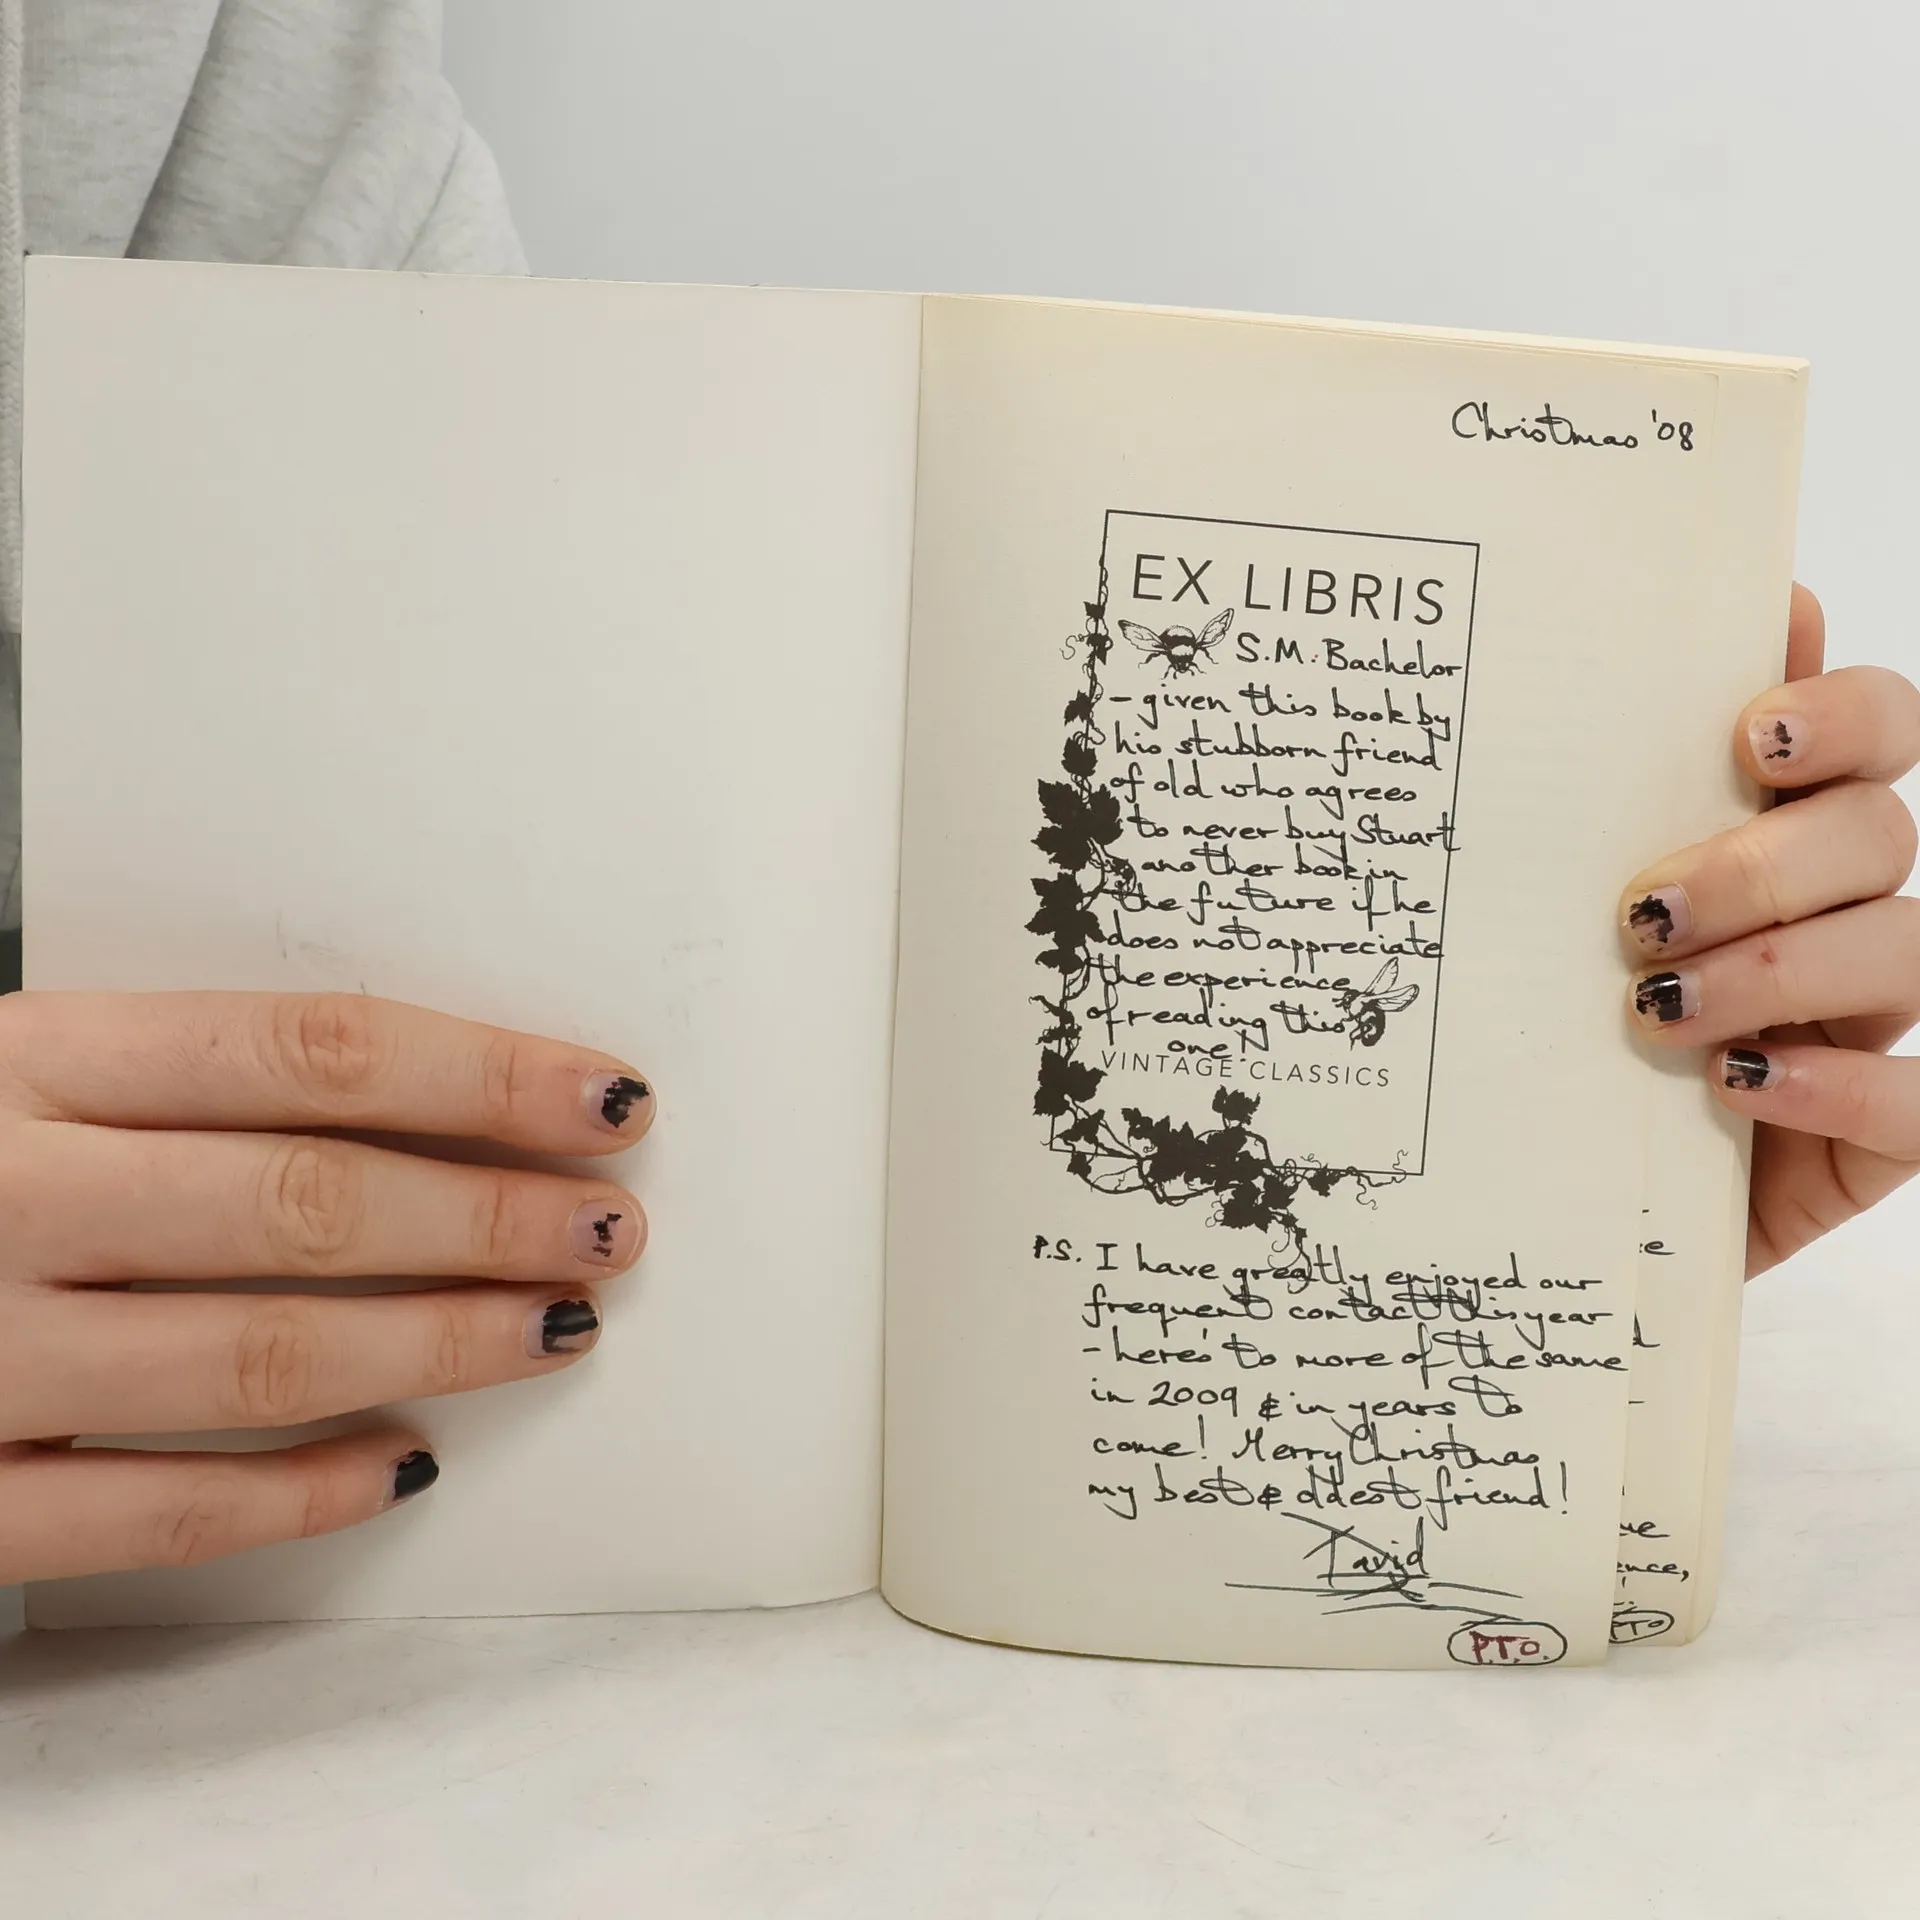 Christmas '08
EX LIBRIS
S.M. Bachelor
- given this book by
his stubborn friend
of old who agrees
to never buy Stuart
another book in
the future if he
does not appreciate
the experience
of reading this
one!
VINTAGE CLASSICS
P.S. I have greatly enjoyed our
frequent contact this year
- here's to more of the same
in 2009 & in years to
come! Merry Christmas
my best & oldest friend!
David
P.T.O.
PTO